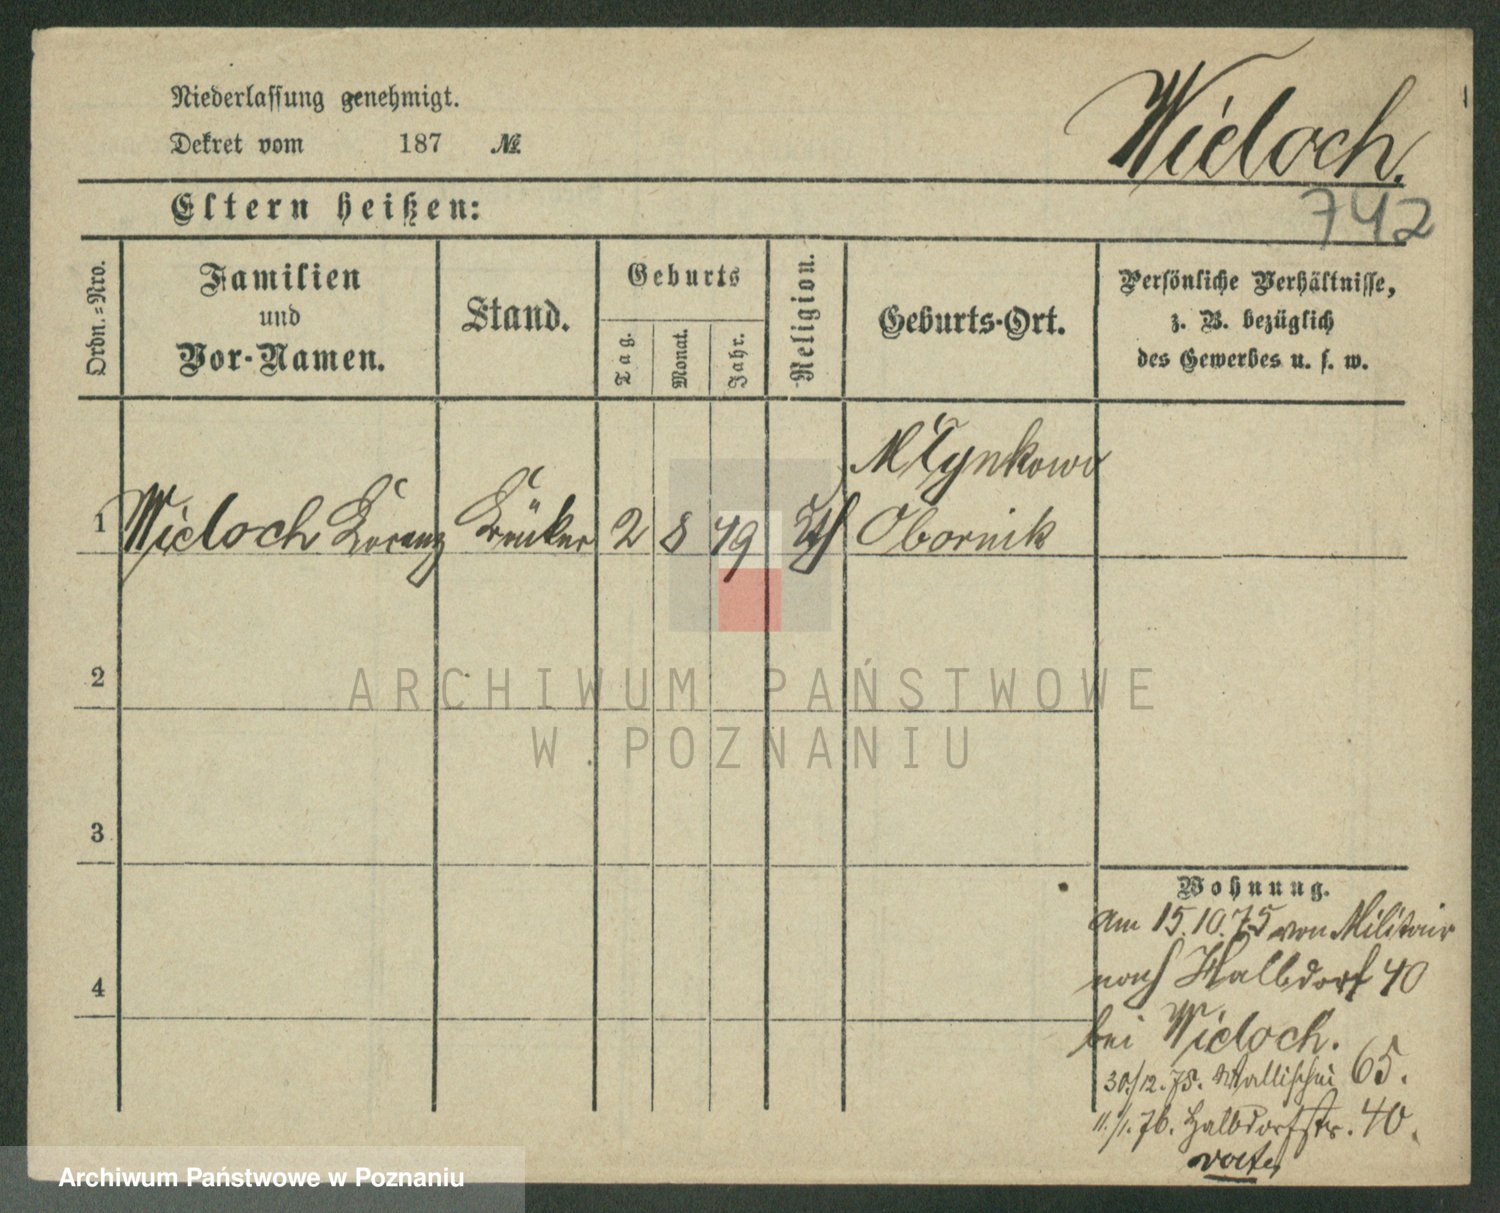 Niederlassung genehmigt.
Dekret vom 187 №
Wieloch.
742
Eltern heißen:
Ordn.=Nro.
Familien
und
Vor-Namen.
Stand.
Geburts
Tag.
Monat.
Jahr.
Religion.
Geburts-Ort.
Persönliche Verhältnisse,
z. B. bezüglich
des Gewerbes u. s. w.
Młynkowo
1 Wieloch Lorenz 2 8 49 Obornik
2
3
4
Wohnung.
Am 15.10.75 von Militair
nach Halbdorf 40
bei Wieloch.
30./12.75. Wallischei 65.
11./1.76. Halbdorfstr. 40.
ARCHIWUM PAŃSTWOWE
W POZNANIU
Archiwum Państwowe w Poznaniu